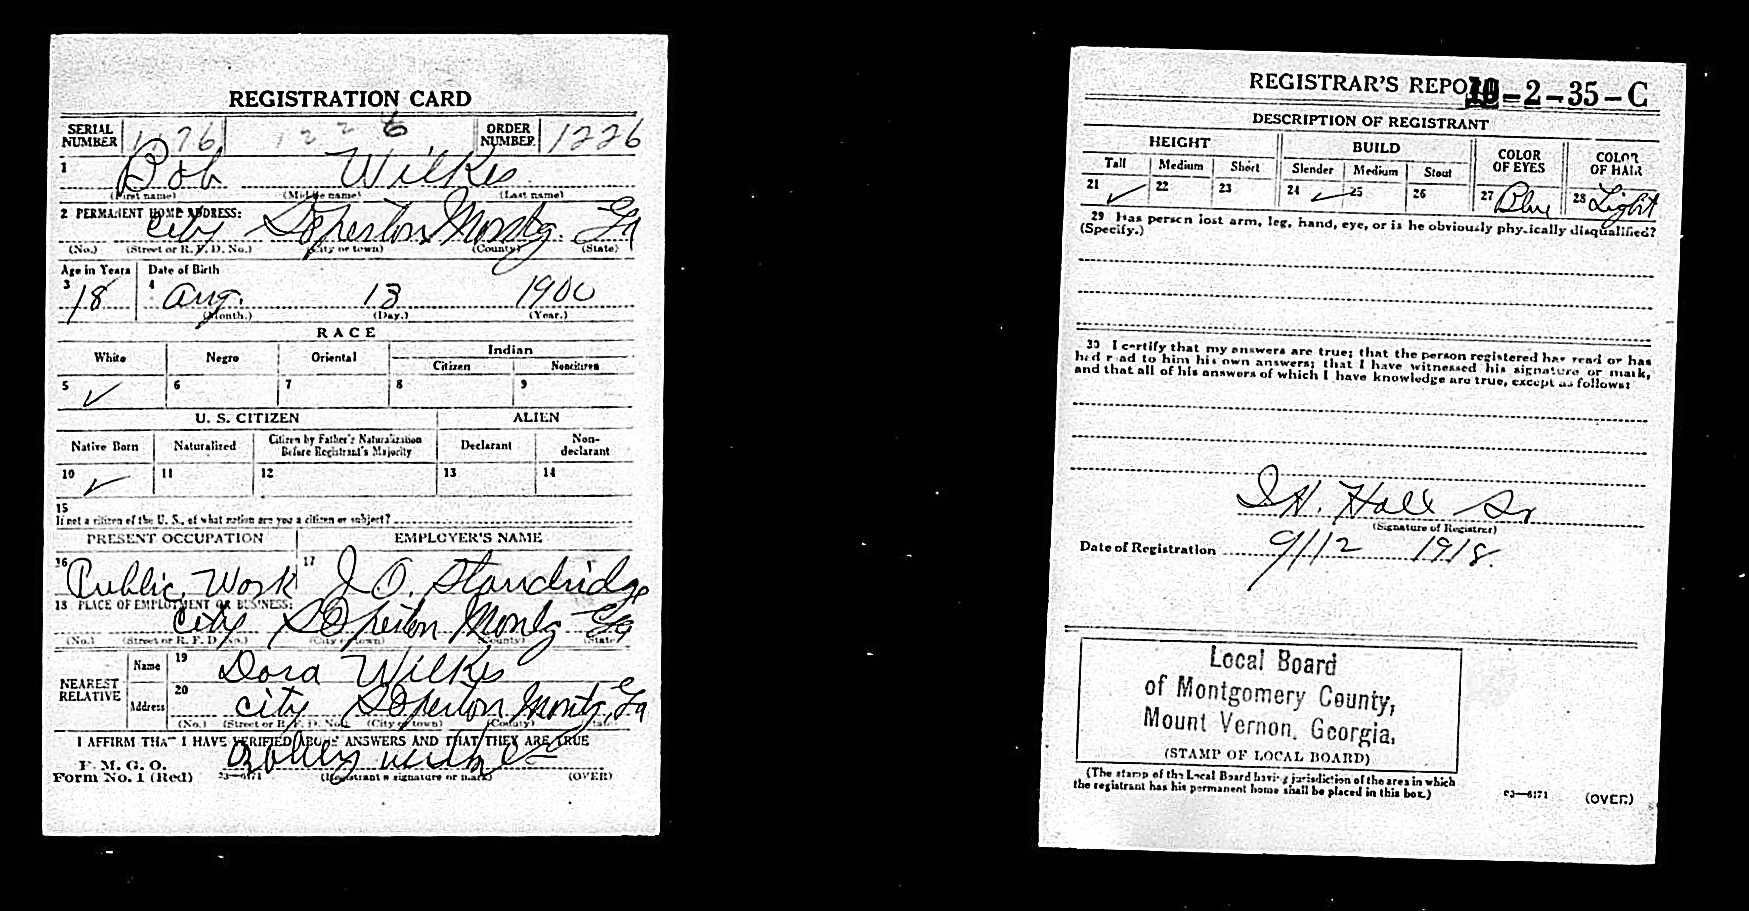 REGISTRATION CARD
SERIAL NUMBER 1176 1226 ORDER NUMBER 1226
1 Bob Wilkes
(First name) (Middle name) (Last name)
2 PERMANENT HOME ADDRESS:
City Soperton Montg. Ga
(No.) (Street or R. F. D. No.) (City or town) (County) (State)
Age in Years Date of Birth
3 18 4 Aug. 13 1900
(Month.) (Day.) (Year.)
RACE
White Negro Oriental Indian
Citizen Noncitizen
5 ✓ 6 7 8 9
U. S. CITIZEN ALIEN
Native Born Naturalized Citizen by Father's Naturalization Before Registrant's Majority Declarant Non-declarant
10 ✓ 11 12 13 14
15
If not a citizen of the U. S., of what nation are you a citizen or subject?
PRESENT OCCUPATION EMPLOYER'S NAME
16 Public Work 17 J. O. Standridge
18 PLACE OF EMPLOYMENT OR BUSINESS:
City Soperton Montg Ga
(No.) (Street or R. F. D. No.) (City or town) (County) (State)
NEAREST RELATIVE Name 19 Dora Wilkes
Address 20 City Soperton Montg, Ga
(No.) (Street or R. F. D. No.) (City or town) (County) (State)
I AFFIRM THAT I HAVE VERIFIED ABOVE ANSWERS AND THAT THEY ARE TRUE
P. M. G. O.
Form No. 1 (Red) 03—6171 (Registrant's signature or mark) (OVER)
REGISTRAR'S REPORT 10-2-35-C
DESCRIPTION OF REGISTRANT
HEIGHT BUILD COLOR OF EYES COLOR OF HAIR
Tall Medium Short Slender Medium Stout
21 ✓ 22 23 24 ✓ 25 26 27 Blue 28 Light
29 Has person lost arm, leg, hand, eye, or is he obviously physically disqualified?
(Specify.)
30 I certify that my answers are true; that the person registered has read or has
had read to him his own answers; that I have witnessed his signature or mark,
and that all of his answers of which I have knowledge are true, except as follows:
I H. Hall Sr
(Signature of Registrar)
Date of Registration 9/12 1918.
Local Board
of Montgomery County,
Mount Vernon, Georgia.
(STAMP OF LOCAL BOARD)
(The stamp of the Local Board having jurisdiction of the area in which
the registrant has his permanent home shall be placed in this box.)
03—6171 (OVER)